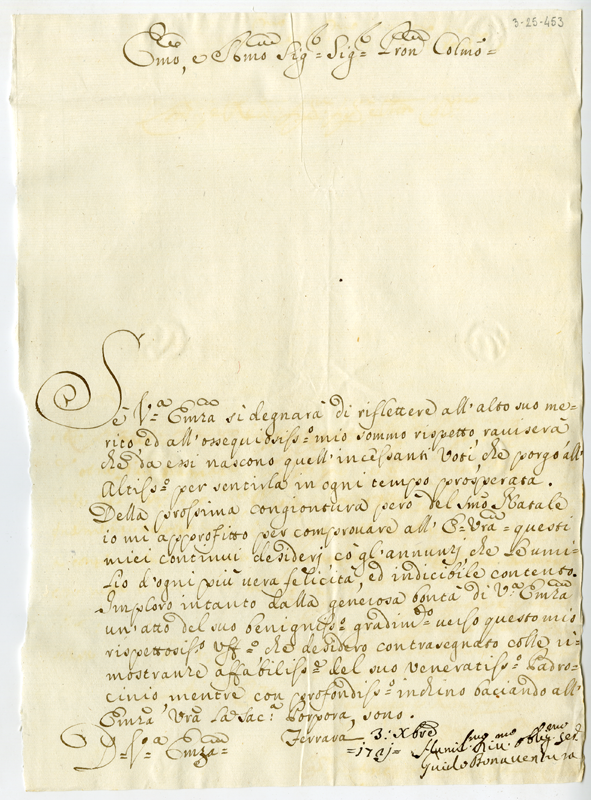 3-25-453
Emo, e Rmo Sig.r Sig.r Pron Colmo=
Se V.a Emza si degnarà di riflettere all'alto suo me-
rito, ed all'ossequiosiss.o mio sommo rispetto, raviserà
che da essi nascono quell'incessanti Voti, che porgo all'
Altiss.o per sentirla in ogni tempo prosperata.
Della prossima congiontura però del Smo Natale
io mi approfitto per comprovare all'E. Vra questi
miei continui desiderj cò gl'annunzj che L'umi-
lio d'ogni più vera felicità, ed indicibile contento.
Imploro intanto dalla generosa bontà di V.a Emza
un'atto del suo benigniss.o gradim.to verso questo mio
rispettosis.o Uff.o che desidero contrasegnato colle di-
mostranze affabiliss.e del suo veneratiss.o Padro-
cinio mentre con profondiss.o inchino baciando all'
Emza Vra La Sac.a Porpora, sono.
D. V.a Emza= Ferrara 3: Xbre
=1741= Humil. Div. Oblig. Ser.
Guido Bonaventura